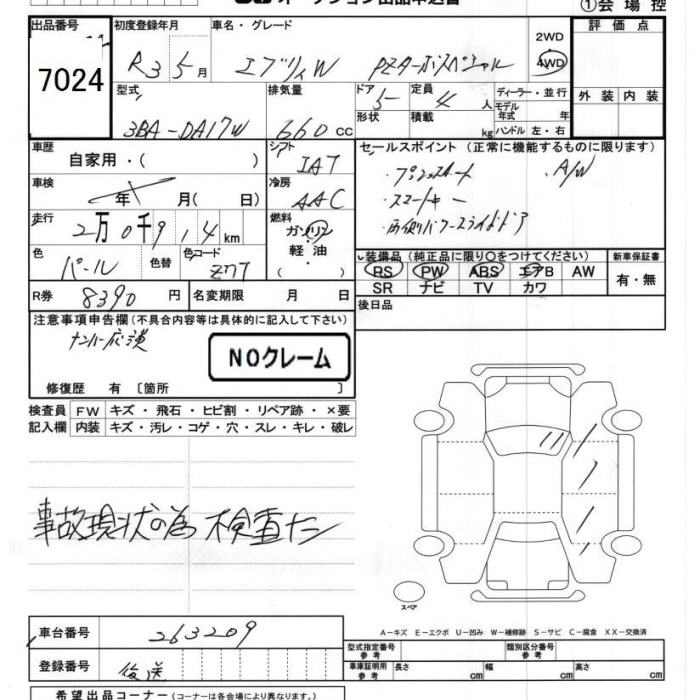 オークション出品申込書
①会場控
出品番号 初度登録年月 車名・グレード 2WD 評価点
7024 R3 5月 エブリィW PZターボスペシャル 4WD
型式 排気量 ドア 定員 ディーラー・並行 外装 内装
3BA-DA17W 660cc 5 4人 モデル年式 年
形状 積載 kg ハンドル 左・右
車歴 シフト セールスポイント (正常に機能するものに限ります)
自家用・( ) IAT ・プッシュスタート ・A/W
車検 年 月(日) 冷房 AAC ・スマートキー
走行 2万0千9 14km 燃料 ガソリン 軽油 ( ) ・両側パワースライドドア
色 パール 色替 色コード Z7T
装備品 (純正品に限り○をつけてください) 新車保証書
RS PW ABS エアB AW 有・無
SR ナビ TV カワ
R券 8390円 名変期限 月 日 後日品
注意事項申告欄(不具合内容等は具体的に記入して下さい)
ナンバー応談
NOクレーム
修復歴 有 〔箇所 〕
検査員 FW キズ・飛石・ヒビ割・リペア跡・×要
記入欄 内装 キズ・汚レ・コゲ・穴・スレ・キレ・破レ
事故現状の為 検査ナシ
スペア
A-キズ E-エクボ U-凹み W-補修跡 S-サビ C-腐食 XX-交換済
車台番号 263209
型式指定番号 参考 類別区分番号 参考
登録番号 後送
車庫証明用 参考 長さ cm 幅 cm 高さ cm
希望出品コーナー (コーナーは各会場により異なります。)